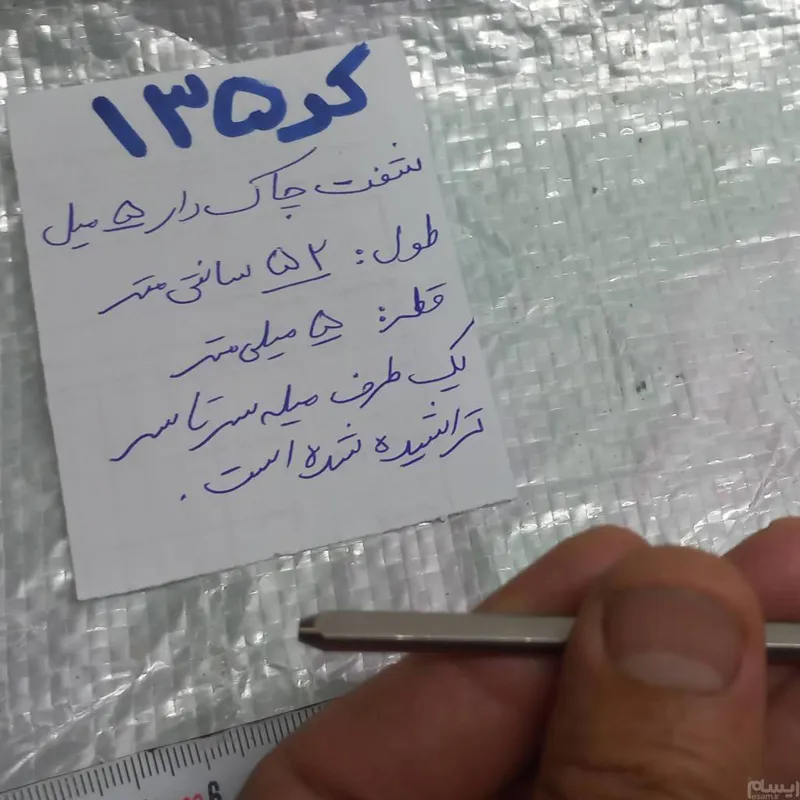 کد ۱۳۵
شفت چاک دار ۵ میل
طول: ۵۲ سانتی متر
قطر: ۵ میلی متر
یک طرف میله سرتاسر
تراشیده شده است.
9
ایسام
esam.ir